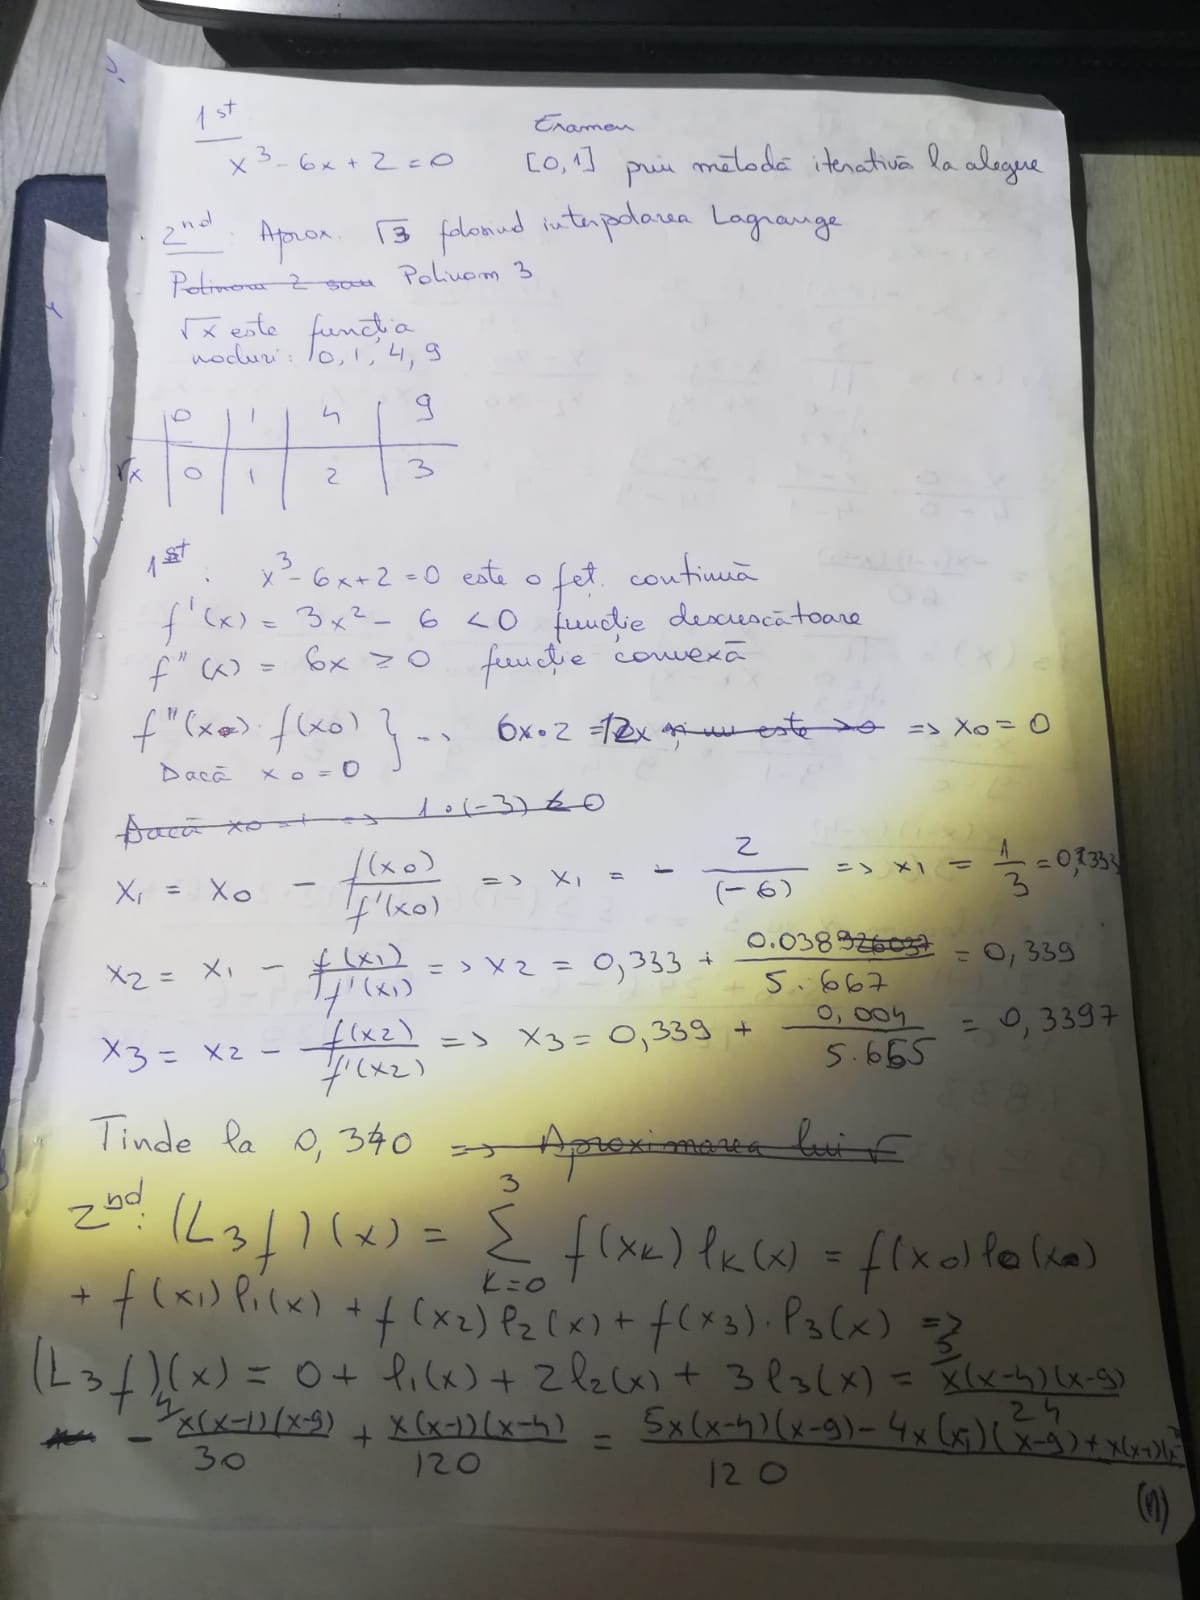 1st Examen
x³ - 6x + 2 = 0 [0,1] prin metodă iterativă la alegere
2nd: Aprox. √3 folosind interpolarea Lagrange
Polinom 2 sau Polinom 3
√x este funcția
noduri: 0, 1, 4, 9
0 | 1 | 4 | 9
√x | 0 | 1 | 2 | 3
1st: x³ - 6x + 2 = 0 este o fct. continuă
f'(x) = 3x² - 6 < 0 funcție descrescătoare
f''(x) = 6x ≥ 0 funcție convexă
f''(x0) · f(x0) } 6x·2 = 12x și nu este >0 => x0 = 0
Dacă x0 = 0
Dacă x0 = 1 => 1·(-3) < 0
x1 = x0 - f(x0)/f'(x0) => x1 = - 2/(-6) => x1 = 1/3 = 0,333
x2 = x1 - f(x1)/f'(x1) => x2 = 0,333 + 0.038926037/5.667 = 0,339
x3 = x2 - f(x2)/f'(x2) => x3 = 0,339 + 0,004/5.655 = 0,3397
Tinde la 0,340 => Aproximarea lui √
2nd: (L3f)(x) = Σ k=0 3 f(xk) lk(x) = f(x0) l0(x0)
+ f(x1) l1(x) + f(x2) l2(x) + f(x3) · l3(x) =>
(L3f)(x) = 0 + l1(x) + 2l2(x) + 3l3(x) = 5/ x(x-4)(x-9)/24
- 4/ x(x-1)(x-9)/30 + x(x-1)(x-4)/120 = 5x(x-4)(x-9) - 4x(x-1)(x-9) + x(x-1)(x-/120